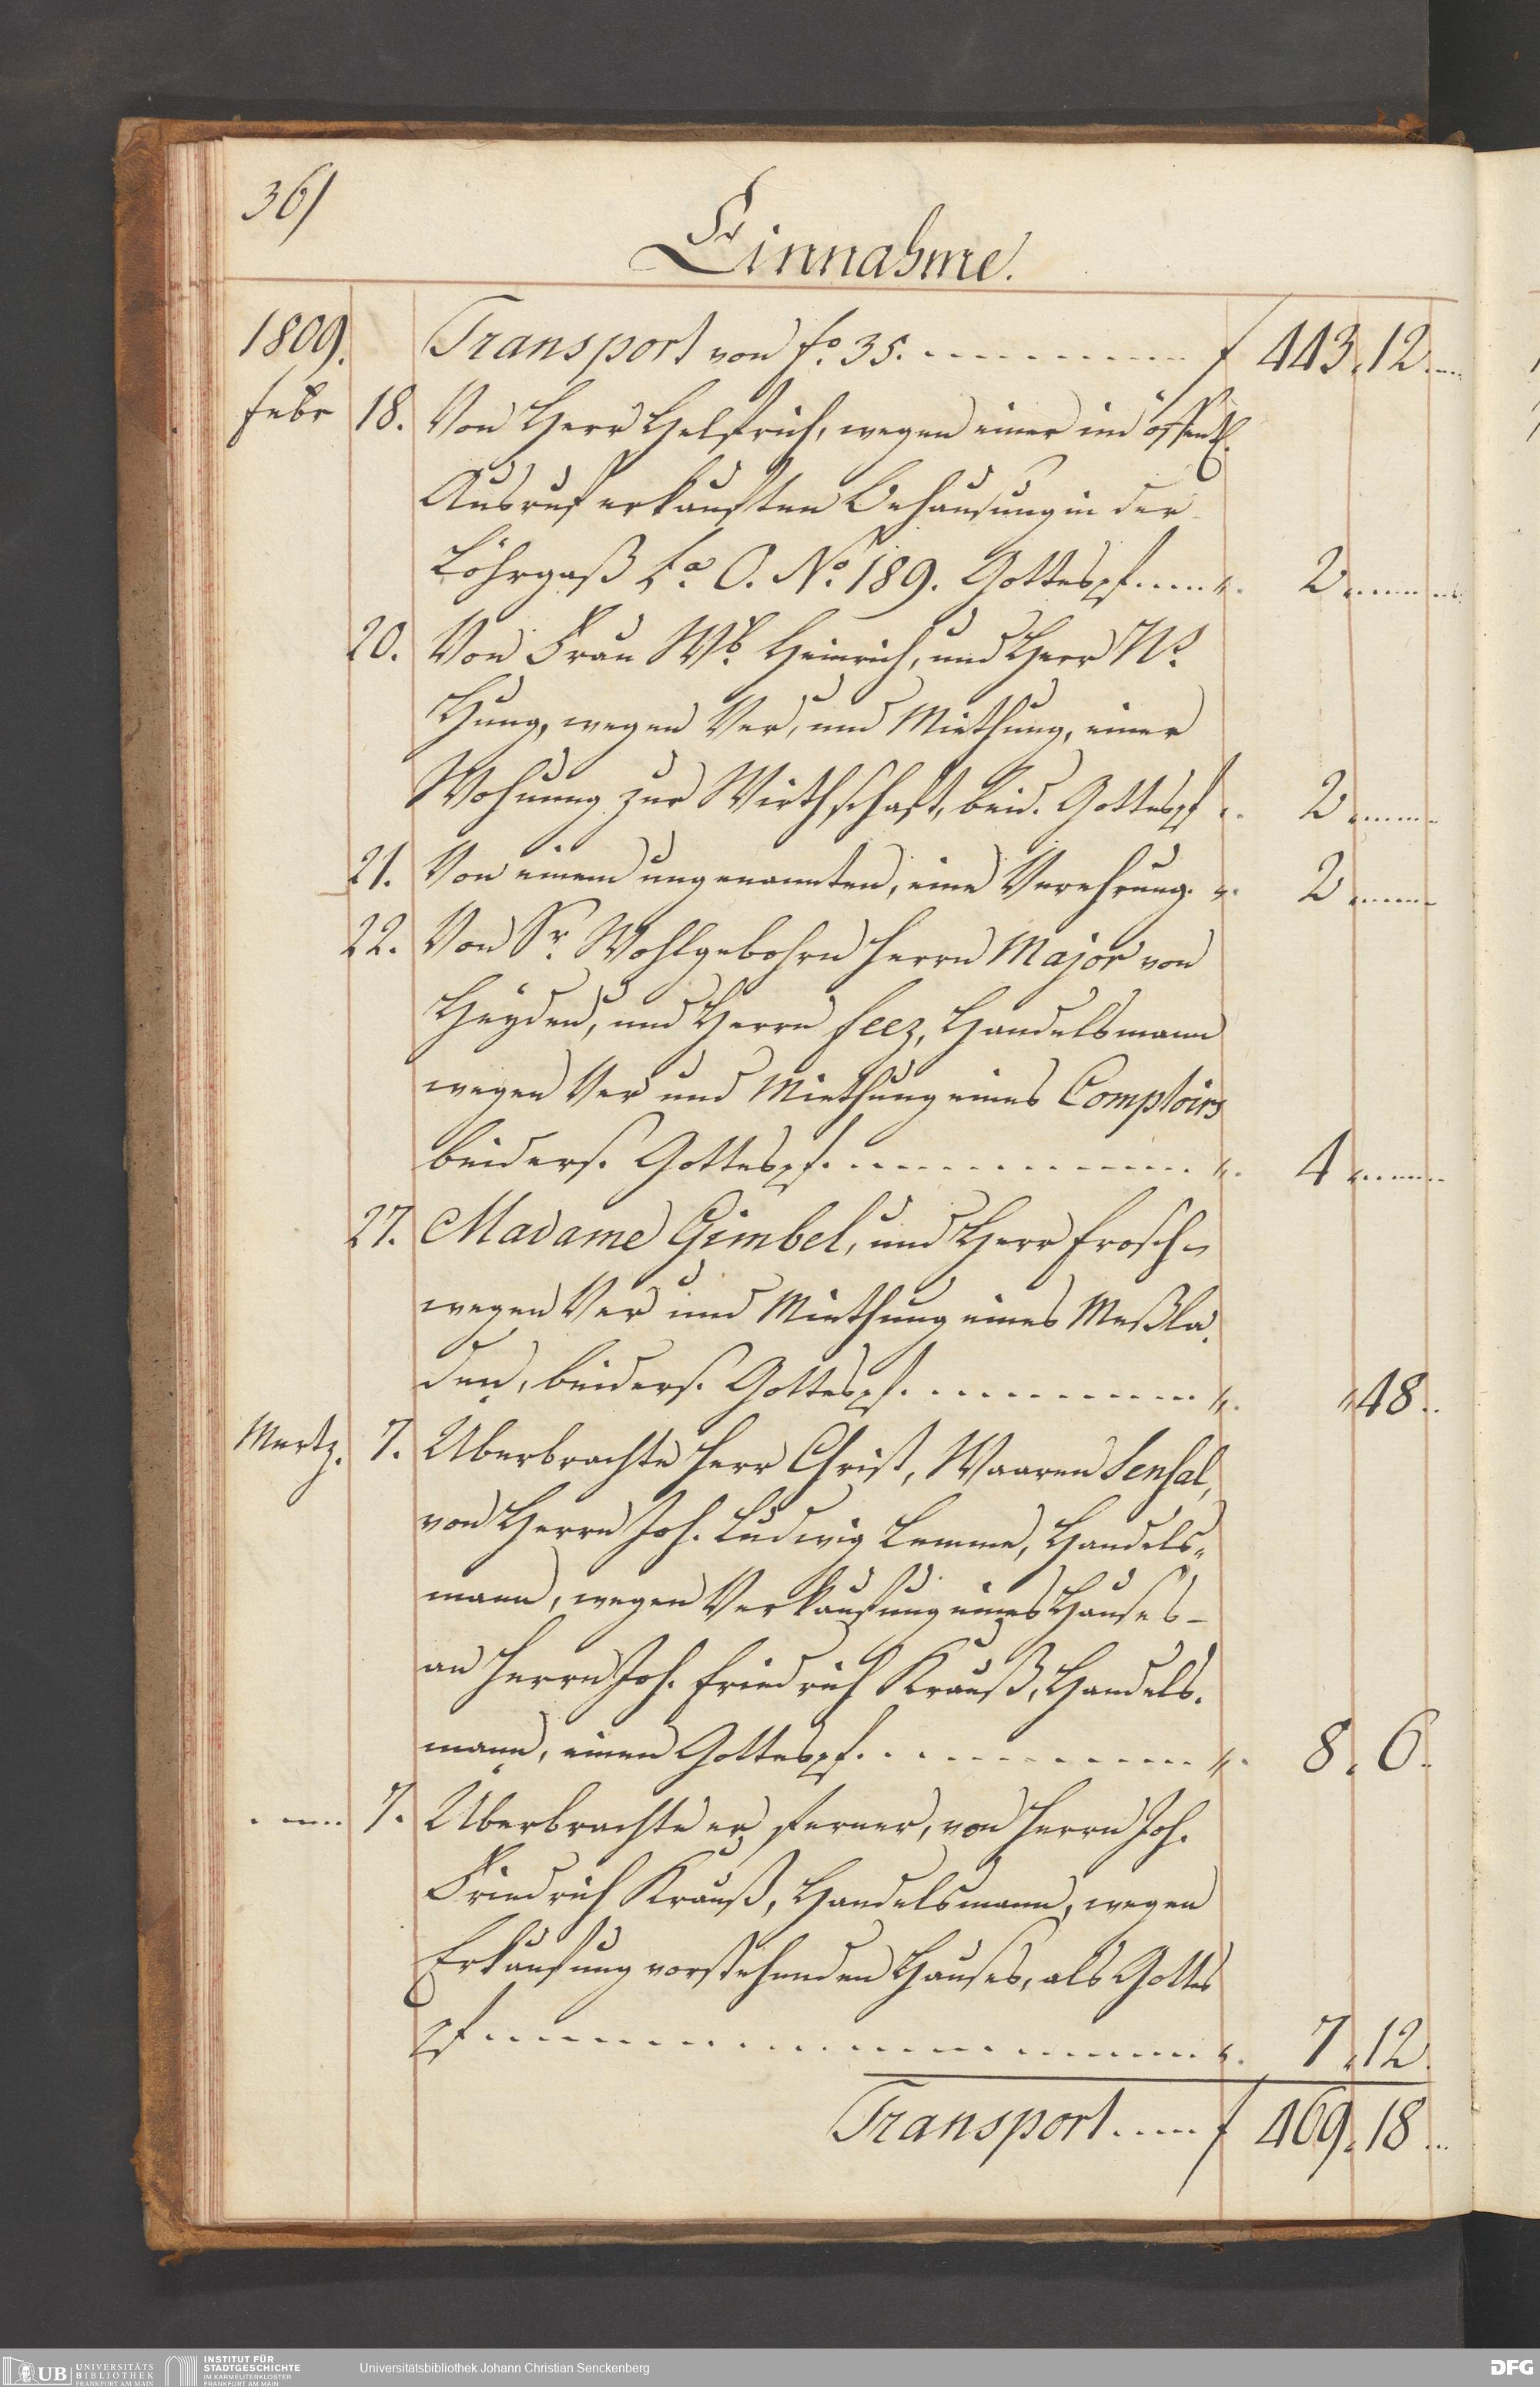 36/
Einnahme.
1809. Transport von fo. 35. .......... f 443. 12. ...
Febr 18. Von Herr Helfrich, wegen einer im öffentl.
Ausruf erkauften Behausung in der
Löhrgaß La. O. No. 189. Gottespf. .... ". 2 ........
20. Von Frau Wb. Heinrich, und Herr
Hung, wegen Ver, und Miethung, einer
Wohnung zur Wirthschaft, beid. Gottespf ". 2 ......
21. Von einem ungenannten, eine Verehrung. ". 2 ......
22. Von Sr. Wohlgebohrn Herrn Major von
Heyden, und Herrn Feez, Handelsmann
wegen Ver und Miethung eines Comptoirs
beiders. Gottespf. .......... ". 4 ......
27. Madame Gimbel, und Herr Frosch,
wegen Ver und Miethung eines Meßla,
den, beiders. Gottespf. .......... ". " 48 ..
Mertz. 7. Uberbrachte Herr Christ, Waaren Sensal,
von Herrn Joh. Ludwig Lemme, Handels,,
mann, wegen Verkaufung eines Hauses –
an Herrn Joh. Friedrich Krauß, Handels,
mann, einen Gottespf. .......... ". 8. 6.
. .... 7. Uberbrachte er ferner, von Herrn Joh.
Friedrich Krauß, Handelsmann, wegen
Erkaufung vorstehenden Hauses, als Gottes
pf .......... ". 7. 12.
Transport ..... f 469. 18 ...
UB UNIVERSITÄTS
BIBLIOTHEK
FRANKFURT AM MAIN
INSTITUT FÜR
STADTGESCHICHTE
IM KARMELITERKLOSTER
FRANKFURT AM MAIN
Universitätsbibliothek Johann Christian Senckenberg
DFG